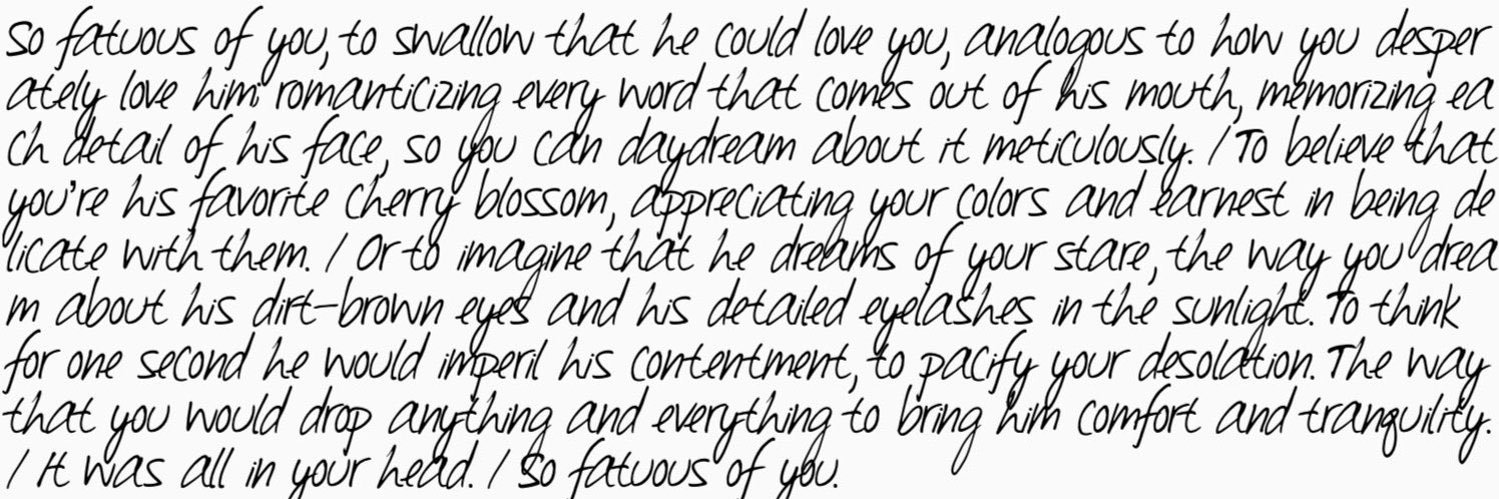 So fatuous of you, to swallow that he could love you, analogous to how you desper
ately love him; romanticizing every word that comes out of his mouth, memorizing ea
ch detail of his face, so you can daydream about it meticulously. / To believe that
you're his favorite cherry blossom, appreciating your colors and earnest in being de
licate with them. / Or to imagine that he dreams of your stare, the way you drea
m about his dirt-brown eyes and his detailed eyelashes in the sunlight. To think
for one second he would imperil his contentment, to pacify your desolation. The way
that you would drop anything and everything to bring him comfort and tranquility.
/ It was all in your head. / So fatuous of you.